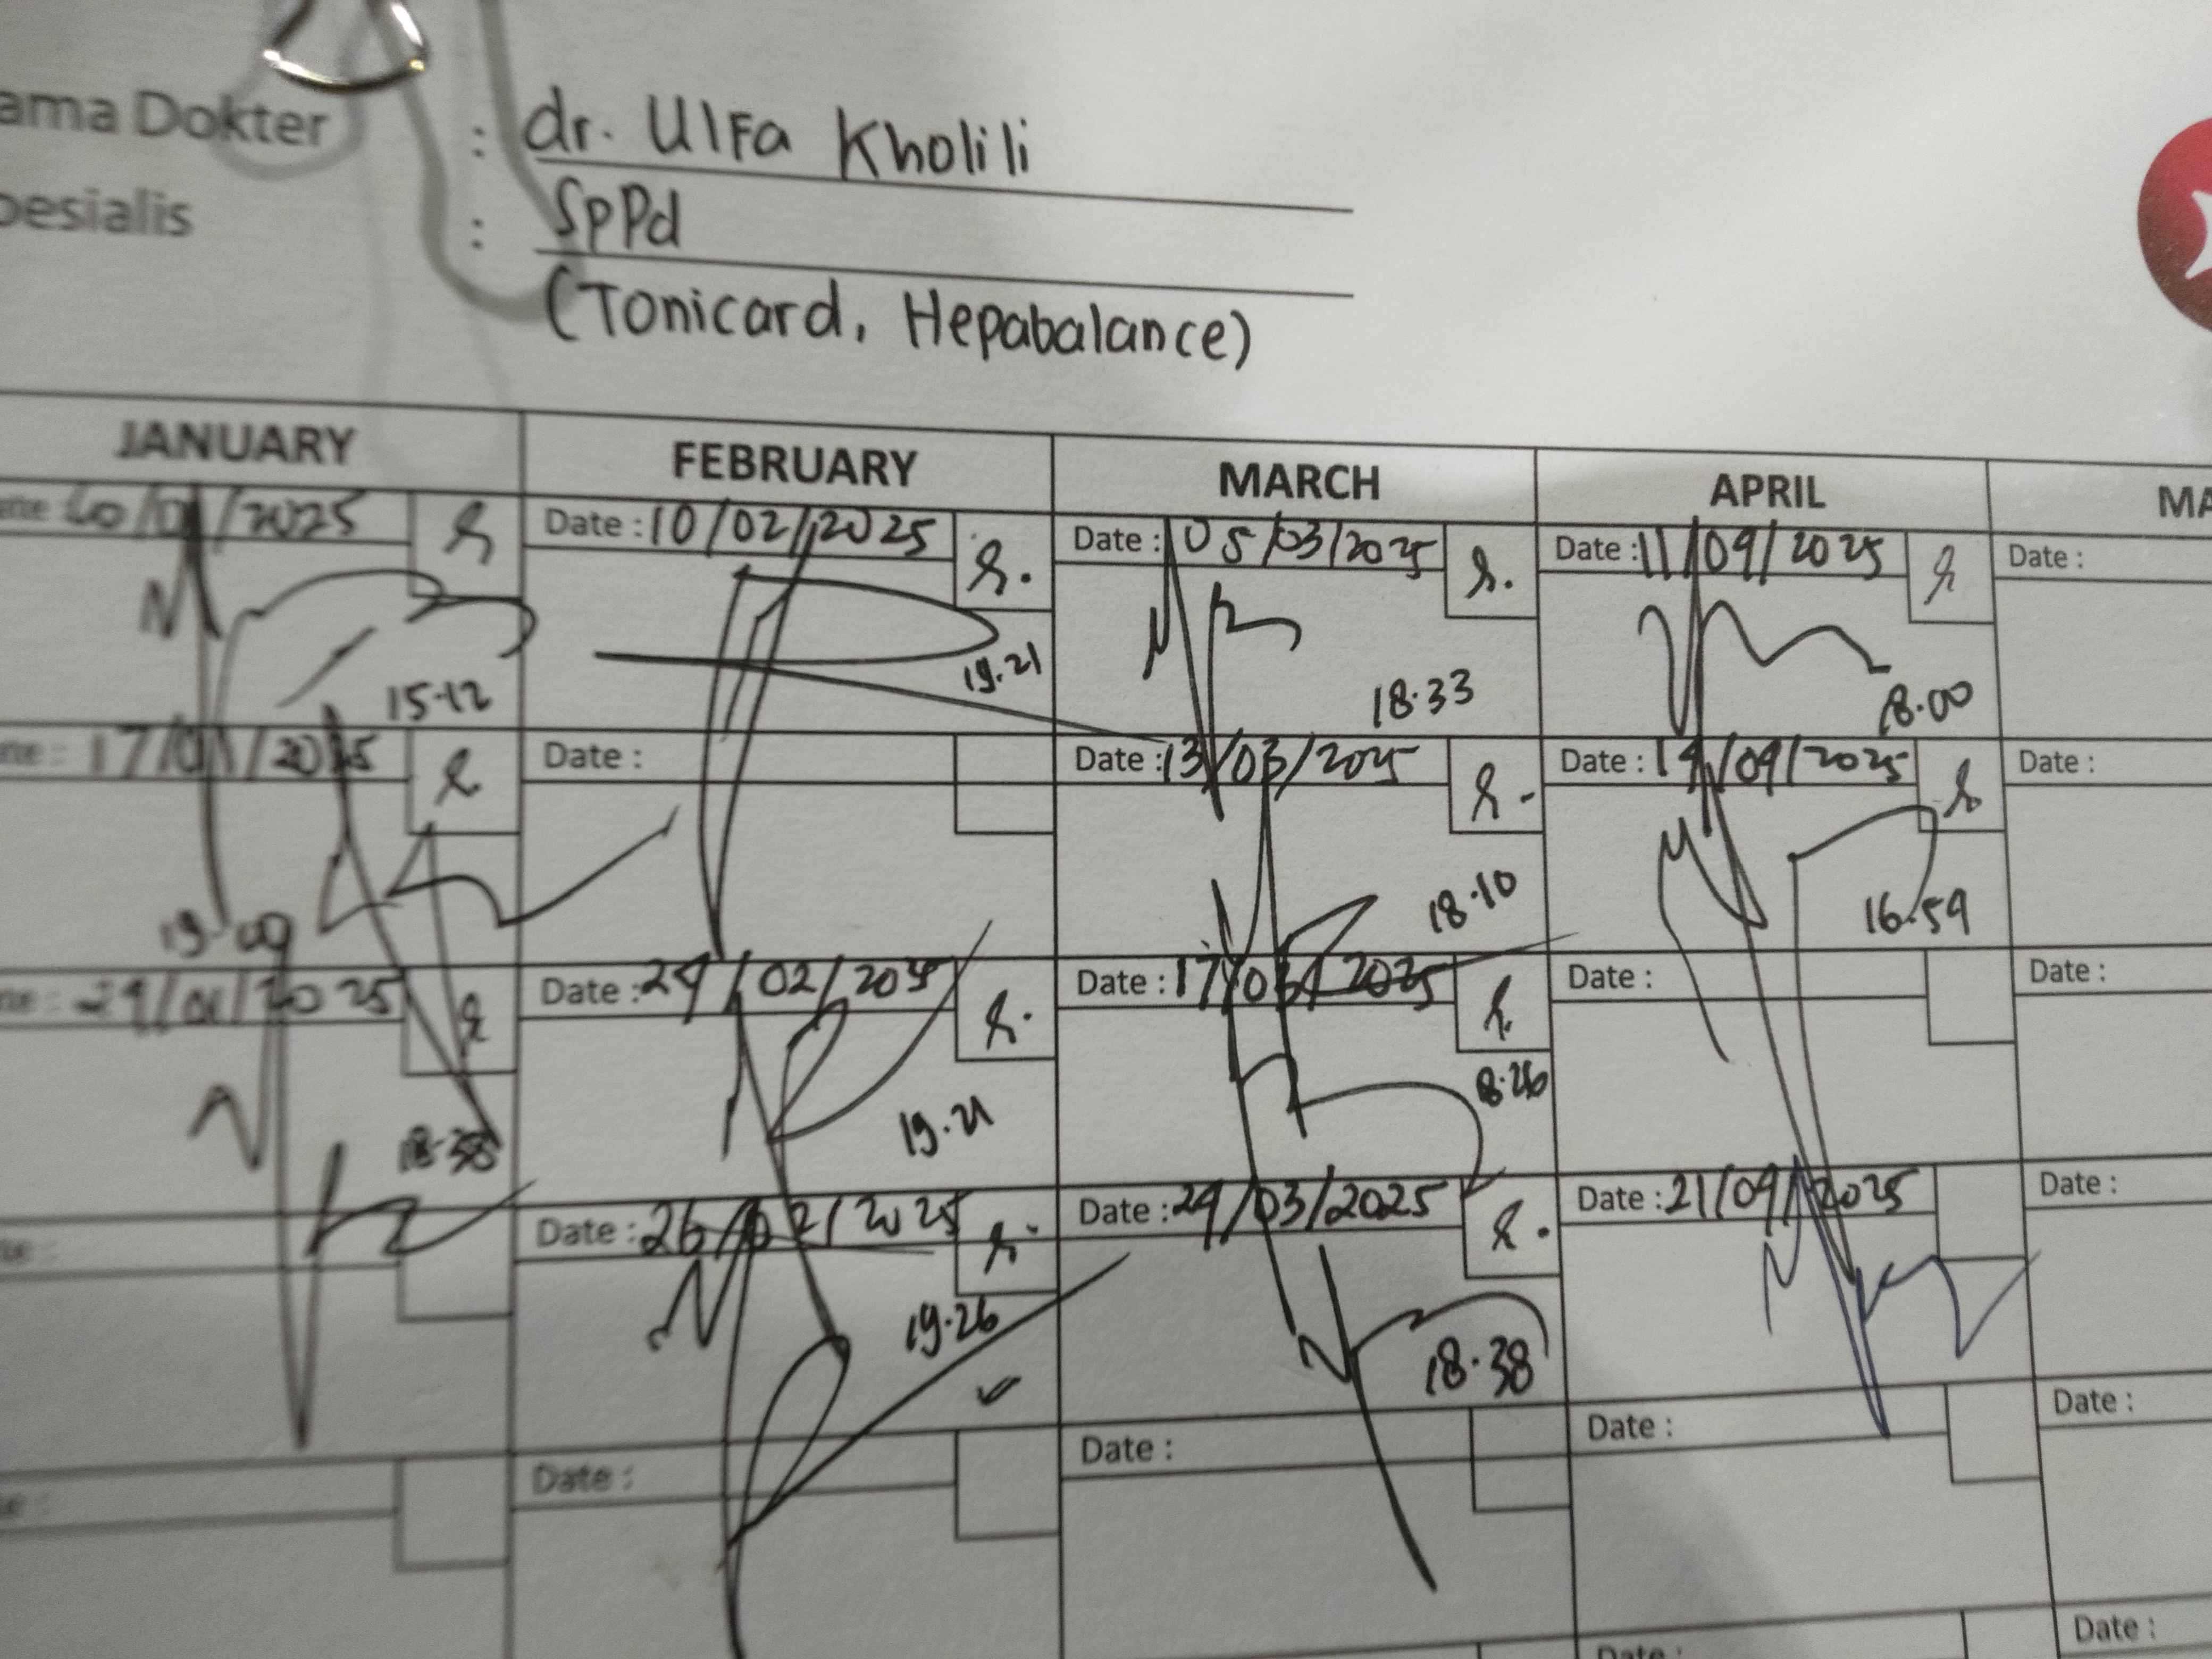 ama Dokter : dr. Ulfa Kholili
pesialis : SpPd
(Tonicard, Hepabalance)
JANUARY FEBRUARY MARCH APRIL MA
Date : 10/02/2025 Date : 05/03/2025 Date : 11/04/2025 Date :
15.12 19.21 18.33 18.00
17/01/2025 Date : Date : 13/03/2025 Date : 14/04/2025 Date :
19.09 18.10 16.59
24/01/2025 Date : 24/02/2025 Date : 17/03/2025 Date : Date :
18.38 19.21 18.26
Date : 26/02/2025 Date : 24/03/2025 Date : 21/04/2025 Date :
19.26 18.38
Date : Date : Date : Date :
Date : Date :